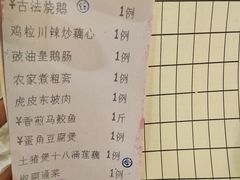 ¥古法烧鹅 1例
鸡粒川辣炒藕心 1例
豉油皇鹅肠 1例
农家煮粗斋 1例
虎皮东坡肉 1例
¥香煎马鲛鱼 1斤
¥蛋角豆腐煲 1例
土猪煲十八涌莲藕 1例
椒丝通菜 1例